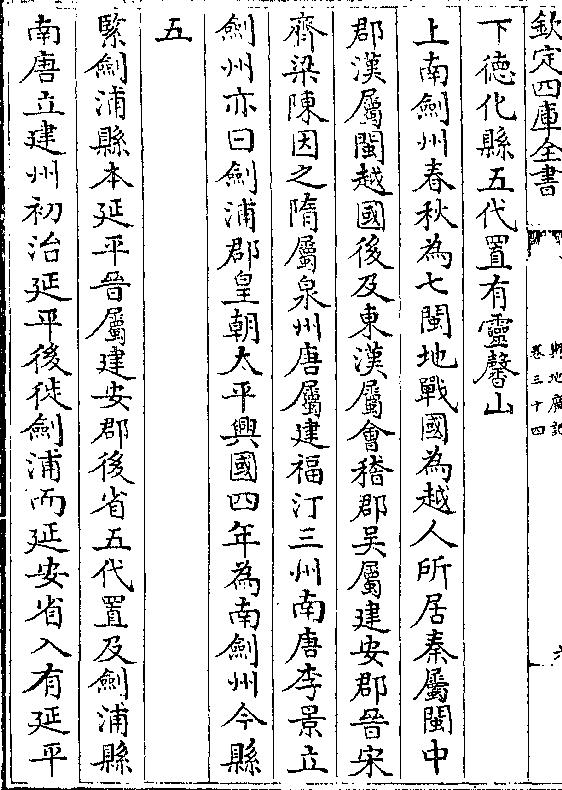 欽定四庫全書
卷三十四
下德化縣五代置有靈醫山
上南劍州春秋為七閩地戰國為越人所居秦屬閩中
郡漢屬閩越國後及東漢屬會稽郡吳屬建安郡晉宋
齊梁陳因之隋屬泉州唐屬建福汀三州南唐李景立
劍州亦曰劍浦郡皇朝太平興國四年為南劍州今縣
五
緊劍浦縣本延平晉屬建安郡後省五代置及劍浦縣
南唐立建州初治延平後徙劍浦而延安省入有延平